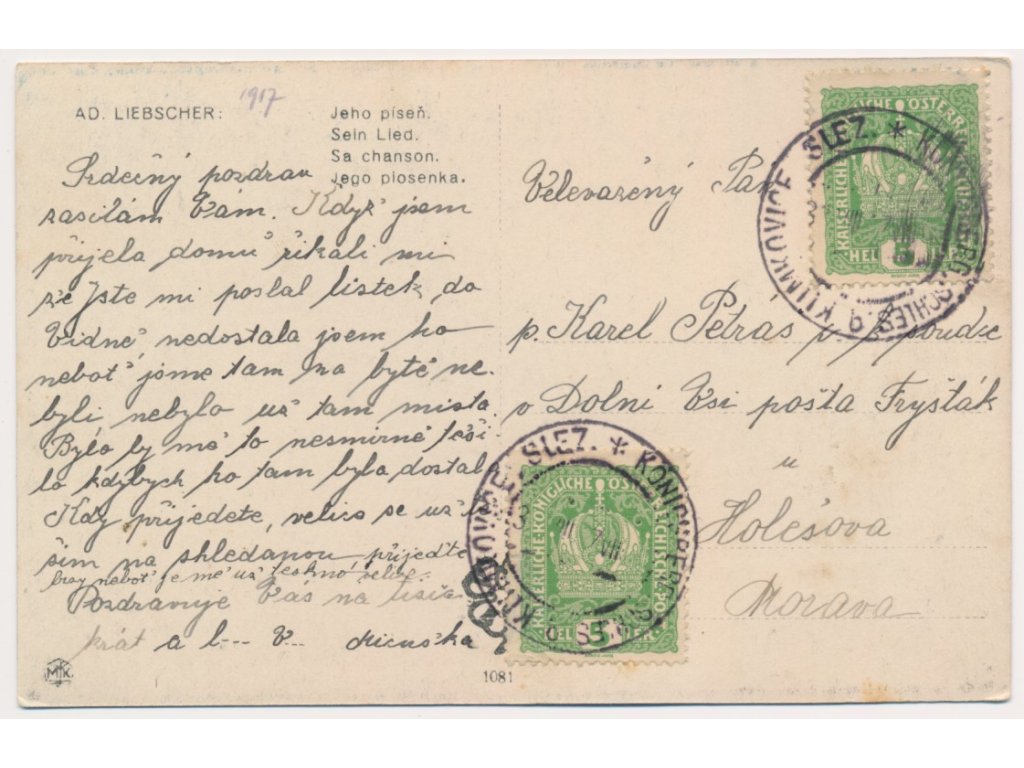 1917
AD. LIEBSCHER:
Jeho píseň.
Sein Lied.
Sa chanson.
Jego piosenka.
Srdečný pozdrav
zasílám Vám. Když jsem
přijela domů říkali mi
že Jste mi poslal lístek do
Vídně, nedostala jsem ho
neboť jsme tam na bytě ne-
byli, nebylo už tam místa.
Bylo by mě to nesmírně těši
lo kdybych ho tam byla dostala
Kdy přijedete, velice se už tě
ším na shledanou přijeďte
brzy neboť je mě už teskno velice.
Pozdravuje Vás na tisíc
krát a l--- V--- Micuška
Velevážený Pan
p. Karel Petras
v Dolní Vsi pošta Fryšták
u
Holešova
Morava
KAISERLICHE KÖNIGLICHE ÖSTERREICHISCHE POST
5 HELLER
KÖNIGSBERG, SCHLES. 9 KLIMKOVICE, SLEZ. *
KAISERLICHE KÖNIGLICHE ÖSTERREICHISCHE POST
5 HELLER
KÖNIGSBERG, SCHLES. 9 KLIMKOVICE, SLEZ. *
MK
1081